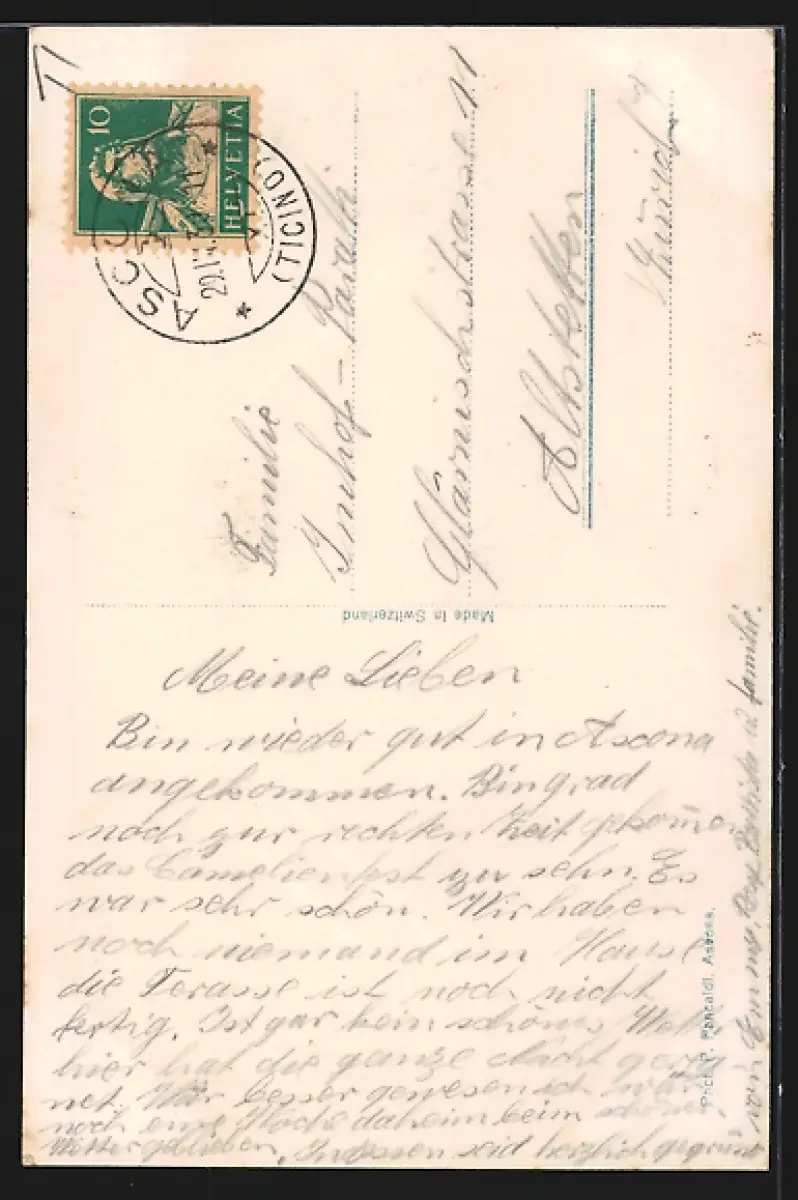 10
HELVETIA
ASCONA
(TICINO)
Familie
Imhof-
Glärnischstrasse 11
Altstetten
Zürich
Made in Switzerland
Meine Lieben
Bin wieder gut in Ascona
angekommen. Bin grad
noch zur rechten Zeit gekom̅en
das Camelienfest zu sehn. Es
war sehr schön. Wir haben
noch niemand im Hause
die Terasse ist noch nicht
fertig. Ist gar kein schönes Wetter
hier hat die ganze Nacht gereg
net. Wär besser gewesen ich wär
noch eine Woche daheim beim schönen
Wetter geblieben. Indessen seid herzlich gegrüsst
von Emmy, Familie.
Phot. P. Pancaldi, Ascona.